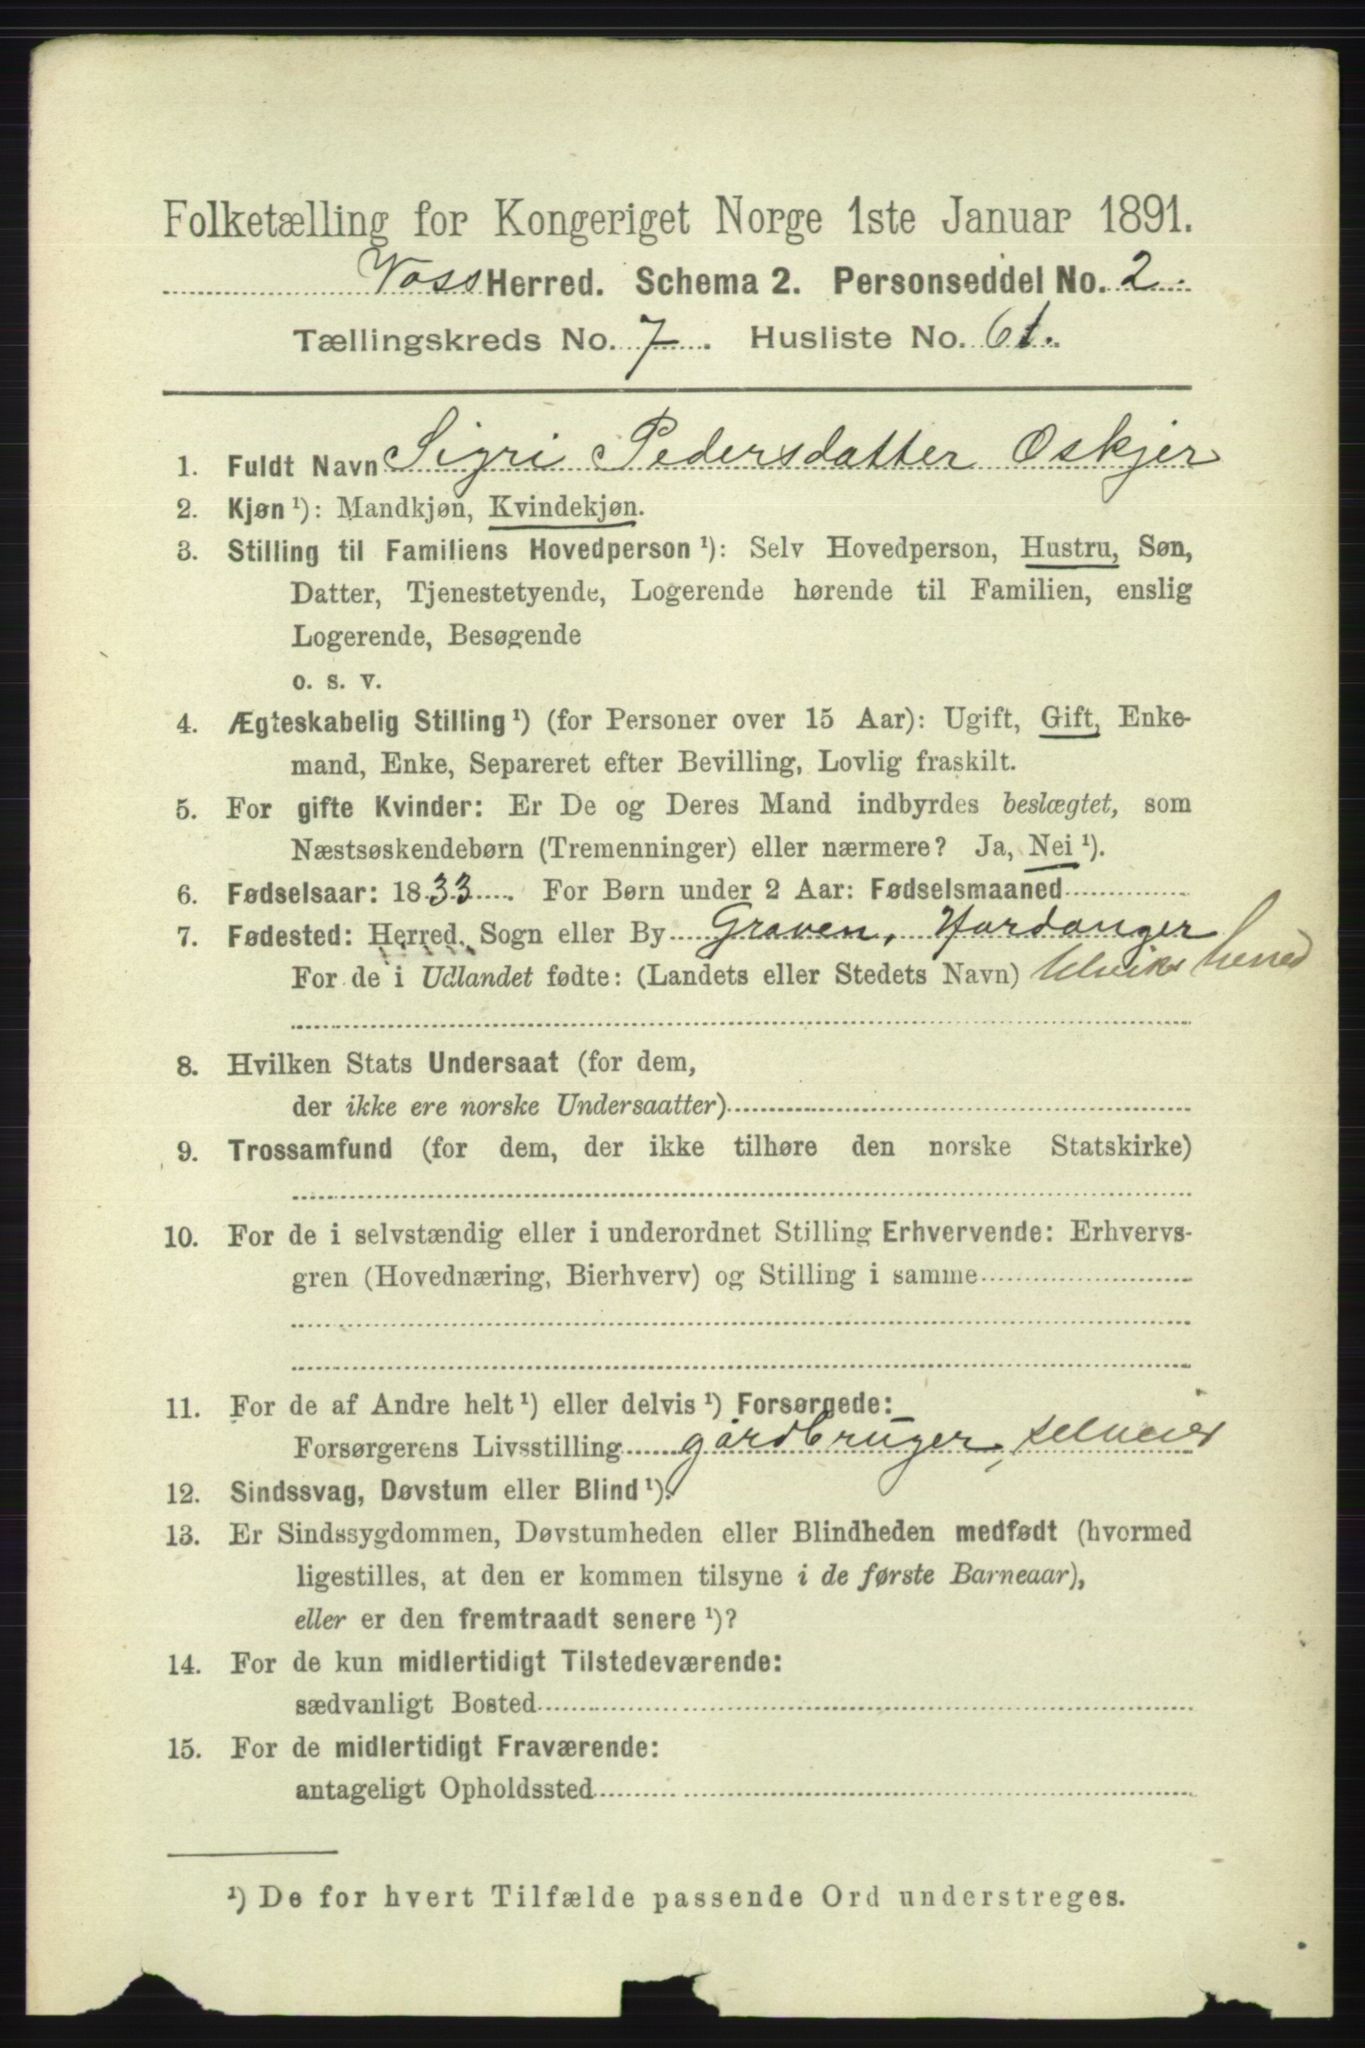 Folketælling for Kongeriget Norge 1ste Januar 1891.
Voss Herred. Schema 2. Personseddel No. 2.
Tællingskreds No. 7. Husliste No. 61.
1. Fuldt Navn Sigri Pedersdatter Oskjer
2. Kjøn ¹): Mandkjøn, Kvindekjøn.
3. Stilling til Familiens Hovedperson ¹): Selv Hovedperson, Hustru, Søn,
Datter, Tjenestetyende, Logerende hørende til Familien, enslig
Logerende, Besøgende
o. s. v.
4. Ægteskabelig Stilling ¹) (for Personer over 15 Aar): Ugift, Gift, Enke-
mand, Enke, Separeret efter Bevilling, Lovlig fraskilt.
5. For gifte Kvinder: Er De og Deres Mand indbyrdes beslægtet, som
Næstsøskendebørn (Tremenninger) eller nærmere? Ja, Nei ¹).
6. Fødselsaar: 1833. For Børn under 2 Aar: Fødselsmaaned
7. Fødested: Herred, Sogn eller By Graven, Hardanger
For de i Udlandet fødte: (Landets eller Stedets Navn) Ulviks herred
8. Hvilken Stats Undersaat (for dem,
der ikke ere norske Undersaatter)
9. Trossamfund (for dem, der ikke tilhøre den norske Statskirke)
10. For de i selvstændig eller i underordnet Stilling Erhvervende: Erhvervs-
gren (Hovednæring, Bierhverv) og Stilling i samme
11. For de af Andre helt ¹) eller delvis ¹) Forsørgede:
Forsørgerens Livsstilling gårdbruger, selveier
12. Sindssvag, Døvstum eller Blind ¹).
13. Er Sindssygdommen, Døvstumheden eller Blindheden medfødt (hvormed
ligestilles, at den er kommen tilsyne i de første Barneaar),
eller er den fremtraadt senere ¹)?
14. For de kun midlertidigt Tilstedeværende:
sædvanligt Bosted
15. For de midlertidigt Fraværende:
antageligt Opholdssted
¹) De for hvert Tilfælde passende Ord understreges.